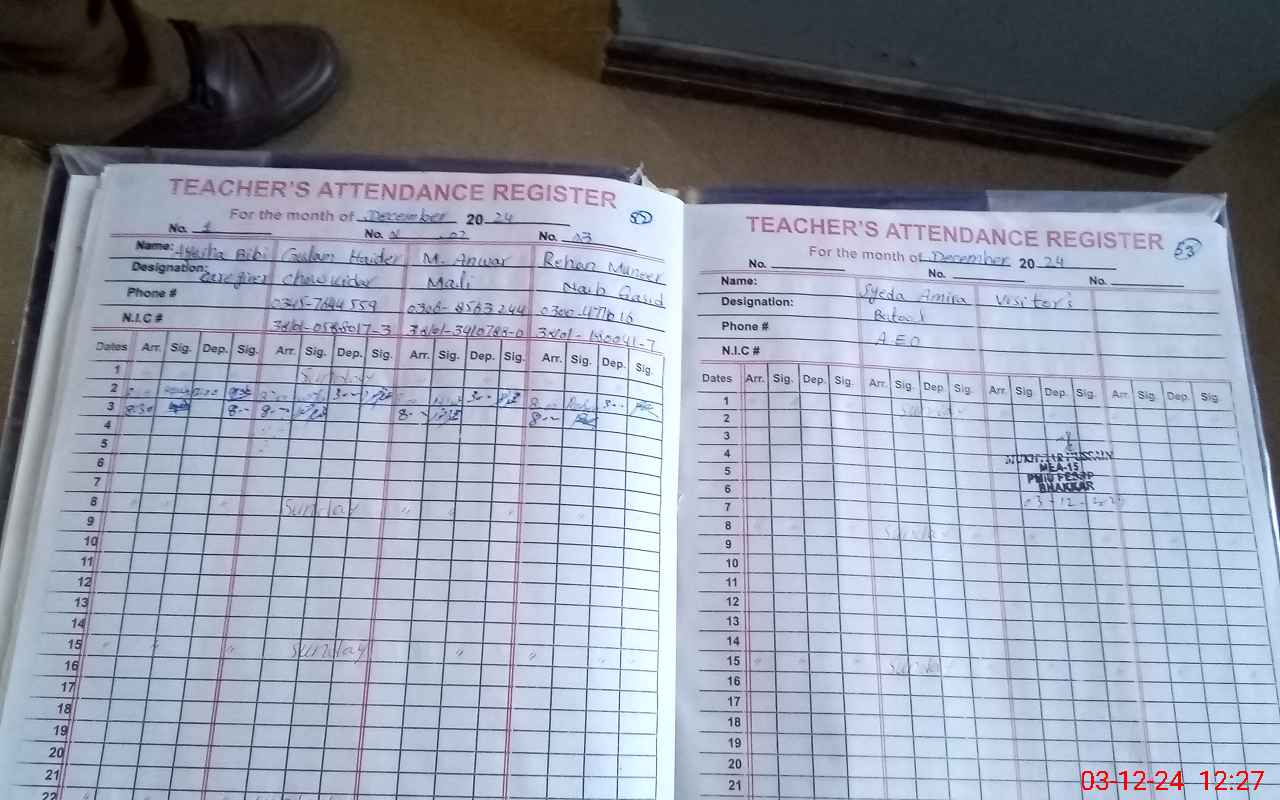 TEACHER'S ATTENDANCE REGISTER
For the month of December 20 24
52
No. 1 No. 02 No. 03
Name: Ayesha Bibi Gulam Haider M. Anwar Rehan Muneer
Designation: Caregiver chowkidar Mali Naib Qasid
Phone # 0345-7644559
N.I.C #
Dates Arr. Sig. Dep. Sig. Arr. Sig. Dep. Sig. Arr. Sig. Dep. Sig. Arr. Sig. Dep. Sig.
1 Sunday
2 3-- 3-- 3--
3 8:30 8-- 8-- 8-- 8--
4
5
6
7
8 " " Sunday " " " "
9
10
11
12
13
14
15 " " " Sunday " " " "
16
17
18
19
20
21
22 "
TEACHER'S ATTENDANCE REGISTER
For the month of December 20 24
53
No. No. No.
Name: Syeda Amira Visitor's
Designation: Batool
Phone # A.E.O
N.I.C #
Dates Arr. Sig. Dep. Sig. Arr. Sig. Dep. Sig. Arr. Sig. Dep. Sig. Arr. Sig. Dep. Sig.
1 Sunday
2
3
4 HUSSAIN
5 MEA-15
6 BHAKKAR
7 03-12-2024
8 Sunday
9
10
11
12
13
14
15 " " " Sunday
16
17
18
19
20
21
03-12-24 12:27